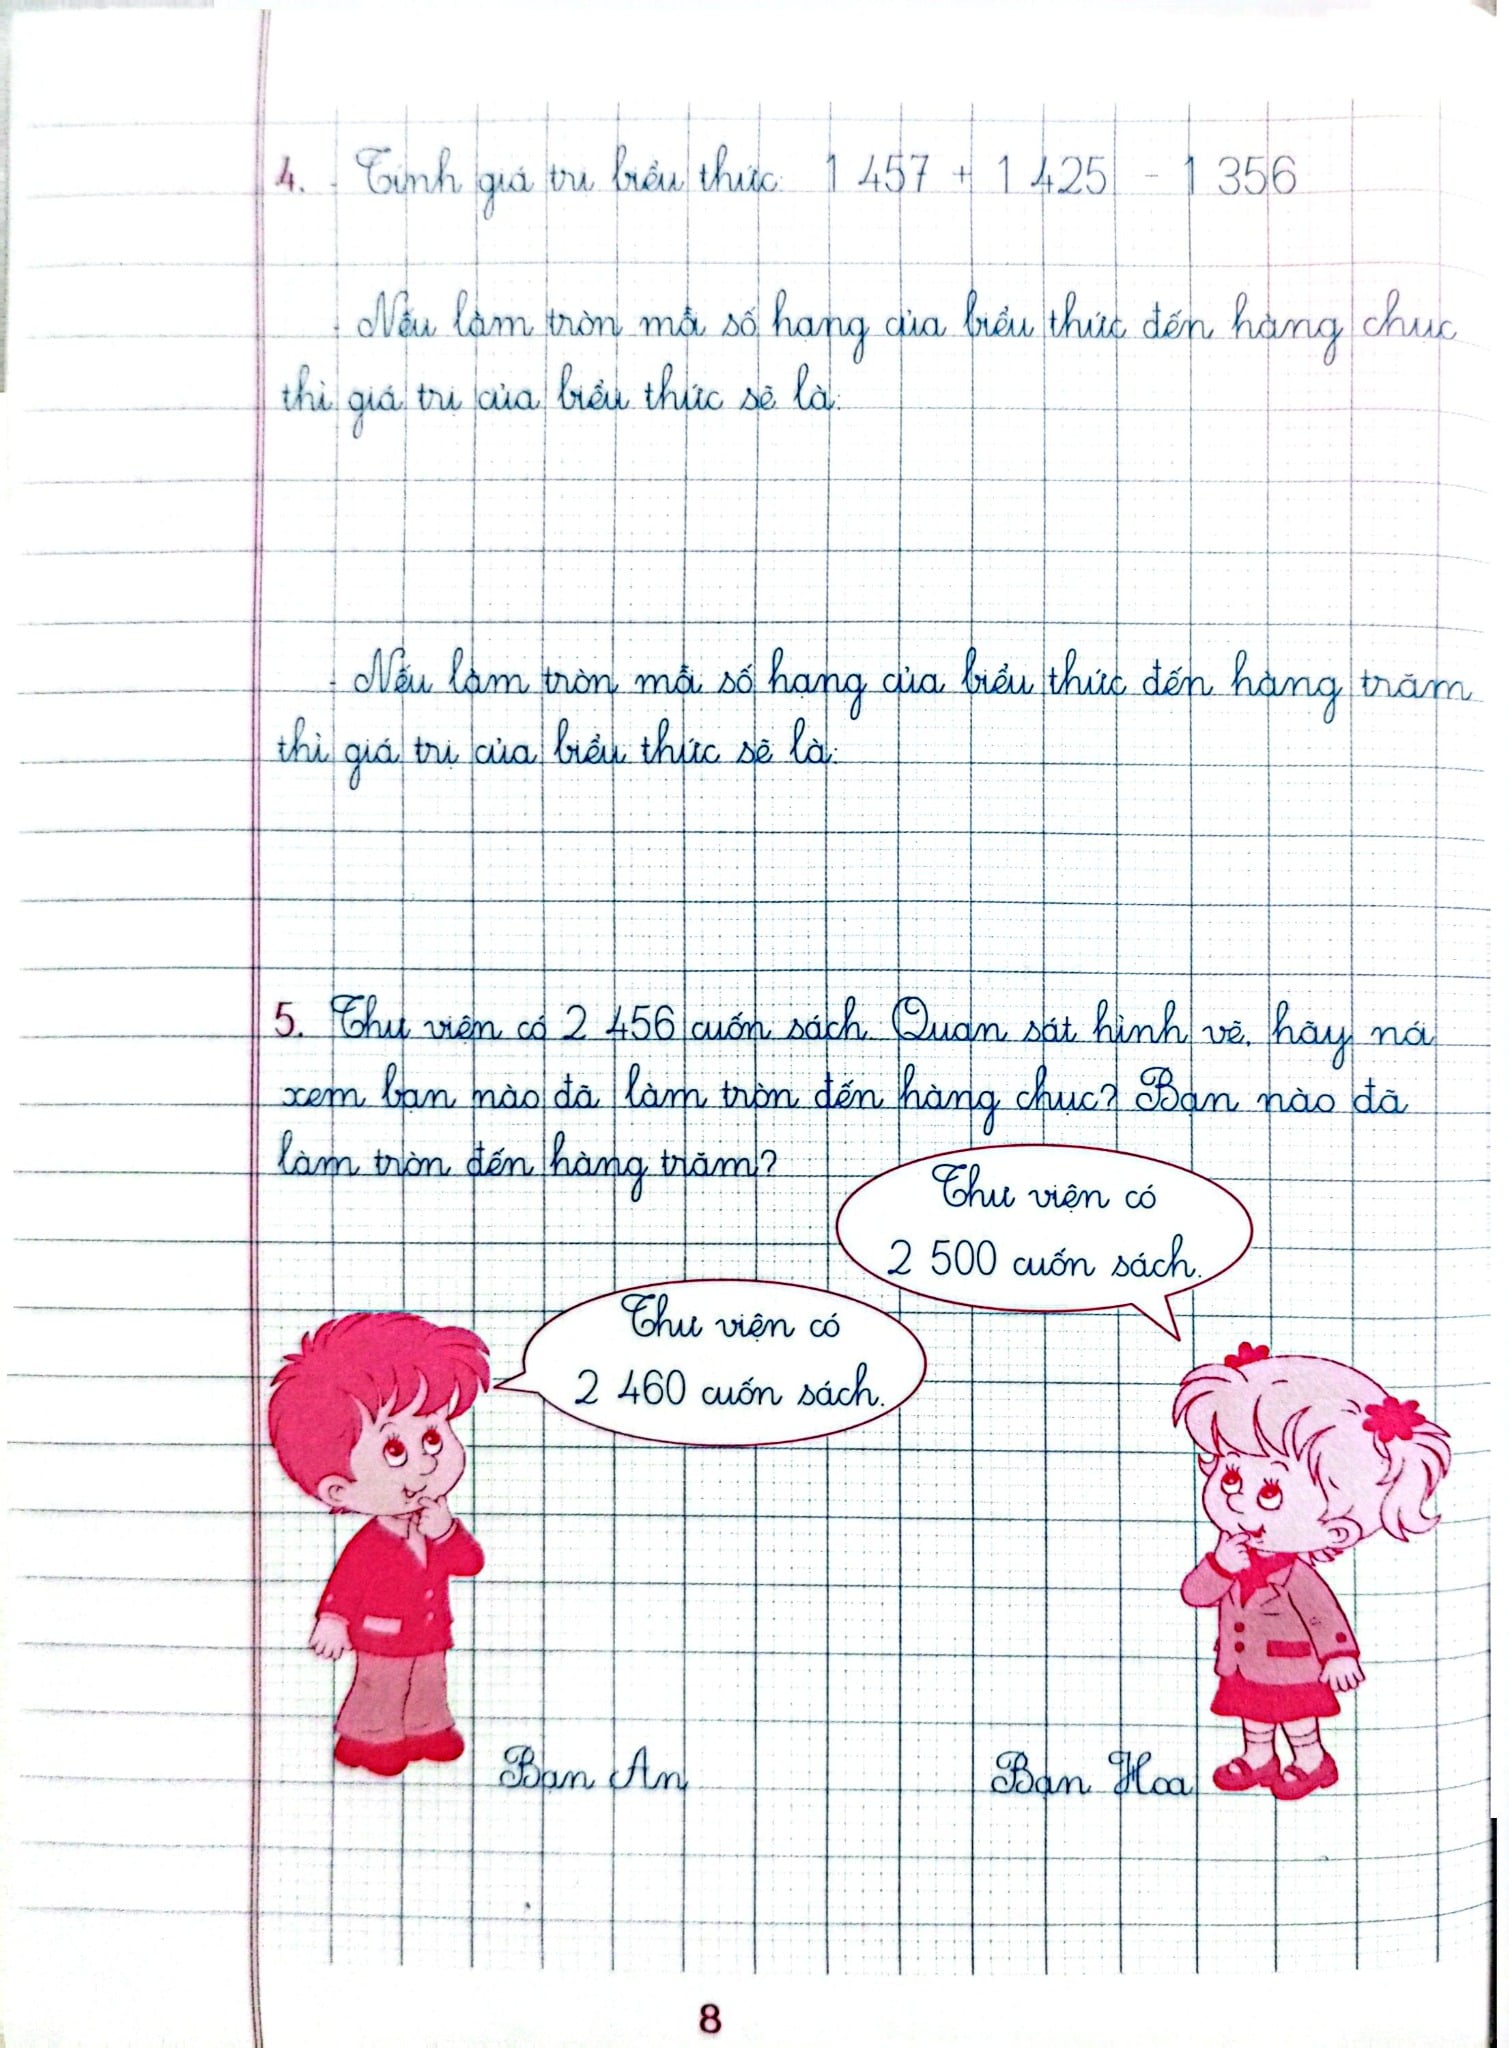 4. - Tính giá trị biểu thức: 1 457 + 1 425 - 1 356
- Nếu làm tròn mỗi số hạng của biểu thức đến hàng chục
thì giá trị của biểu thức sẽ là:
- Nếu làm tròn mỗi số hạng của biểu thức đến hàng trăm
thì giá trị của biểu thức sẽ là:
5. Thư viện có 2 456 cuốn sách. Quan sát hình vẽ, hãy nói
xem bạn nào đã làm tròn đến hàng chục? Bạn nào đã
làm tròn đến hàng trăm?
Thư viện có
2 500 cuốn sách.
Thư viện có
2 460 cuốn sách.
Bạn An
Bạn Hoa
8